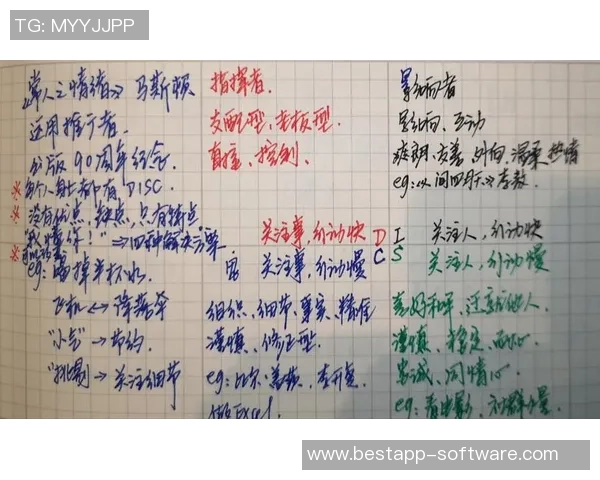 TG: MYYJJPP
《常人之情绪》 马斯顿
运用推广者.
出版90周年纪念.
※每个人身上都有DISC.
※没有优点、缺点,只有特点
※"我懂你!" → 四种解决方案
eg: 喝掉半杯水
飞机 ↔ 降落伞
"小气" → 节约.
"挑剔" → 关注细节
指挥者.
支配型,老板型.
直接、控制.
关注事,行动快 D
关注事,行动慢 C
组织、细节、事实、精准
谨慎、修正型.
eg: 比尔·盖茨、李开复.
做Excel.
影响者
影响、互动
友善、外向、温柔、热情
eg:《人间四月天》
I 关注人,行动快
S 关注人,行动慢
喜好和平、迁就他人.
谨慎、稳定、耐心.
忠诚、同情心.
eg: 看电影
www.bestapp-software.com